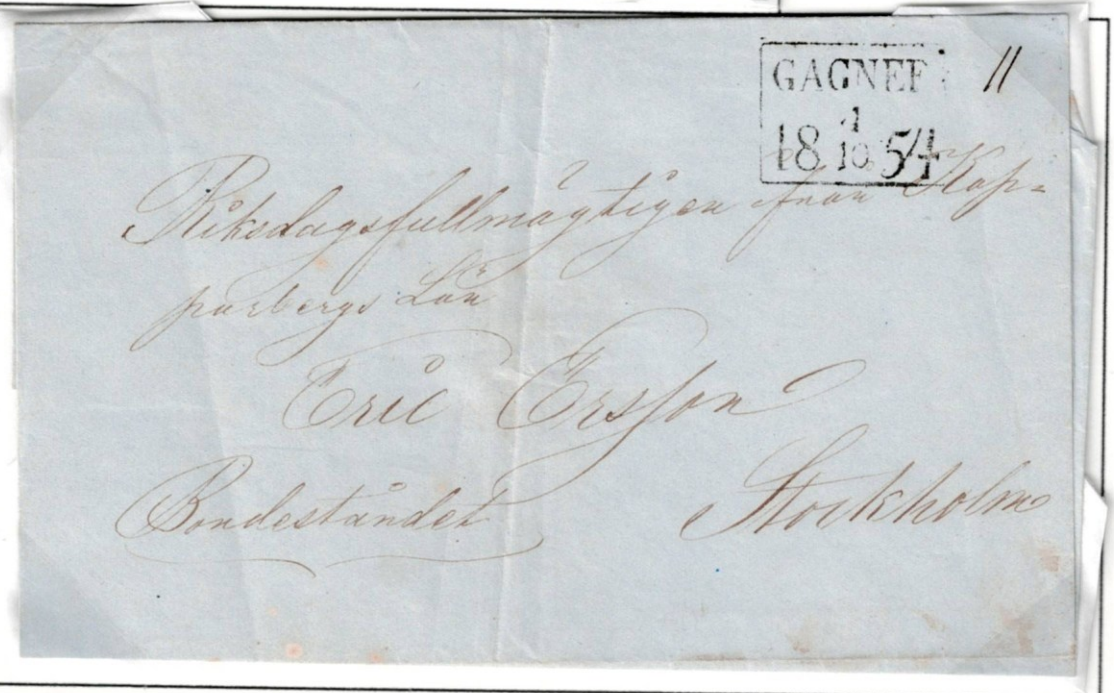 GAGNEF
11
1
18 10 54
Riksdagsfullmägtigen från Kop=
parbergs Län
Eric Ersson
Bondeståndet
Stockholm